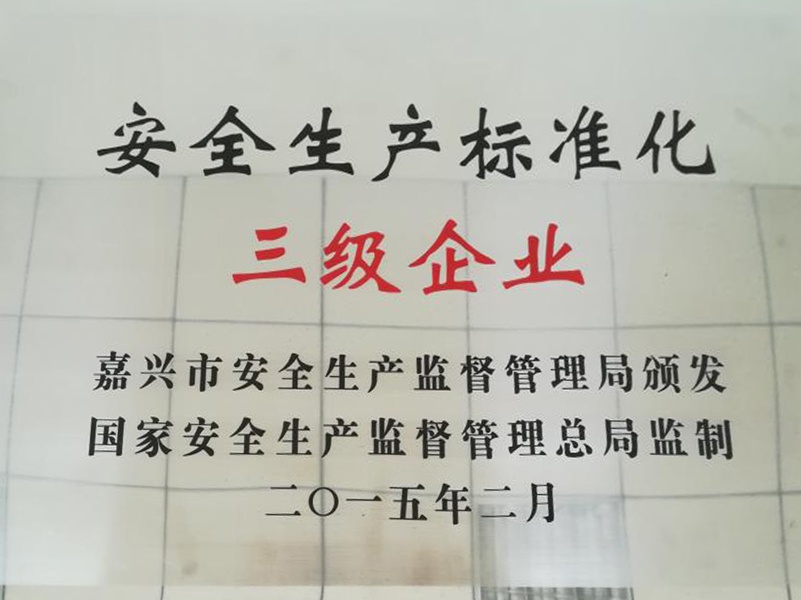 安全生产标准化
三级企业
嘉兴市安全生产监督管理局颁发
国家安全生产监督管理总局监制
二〇一五年二月